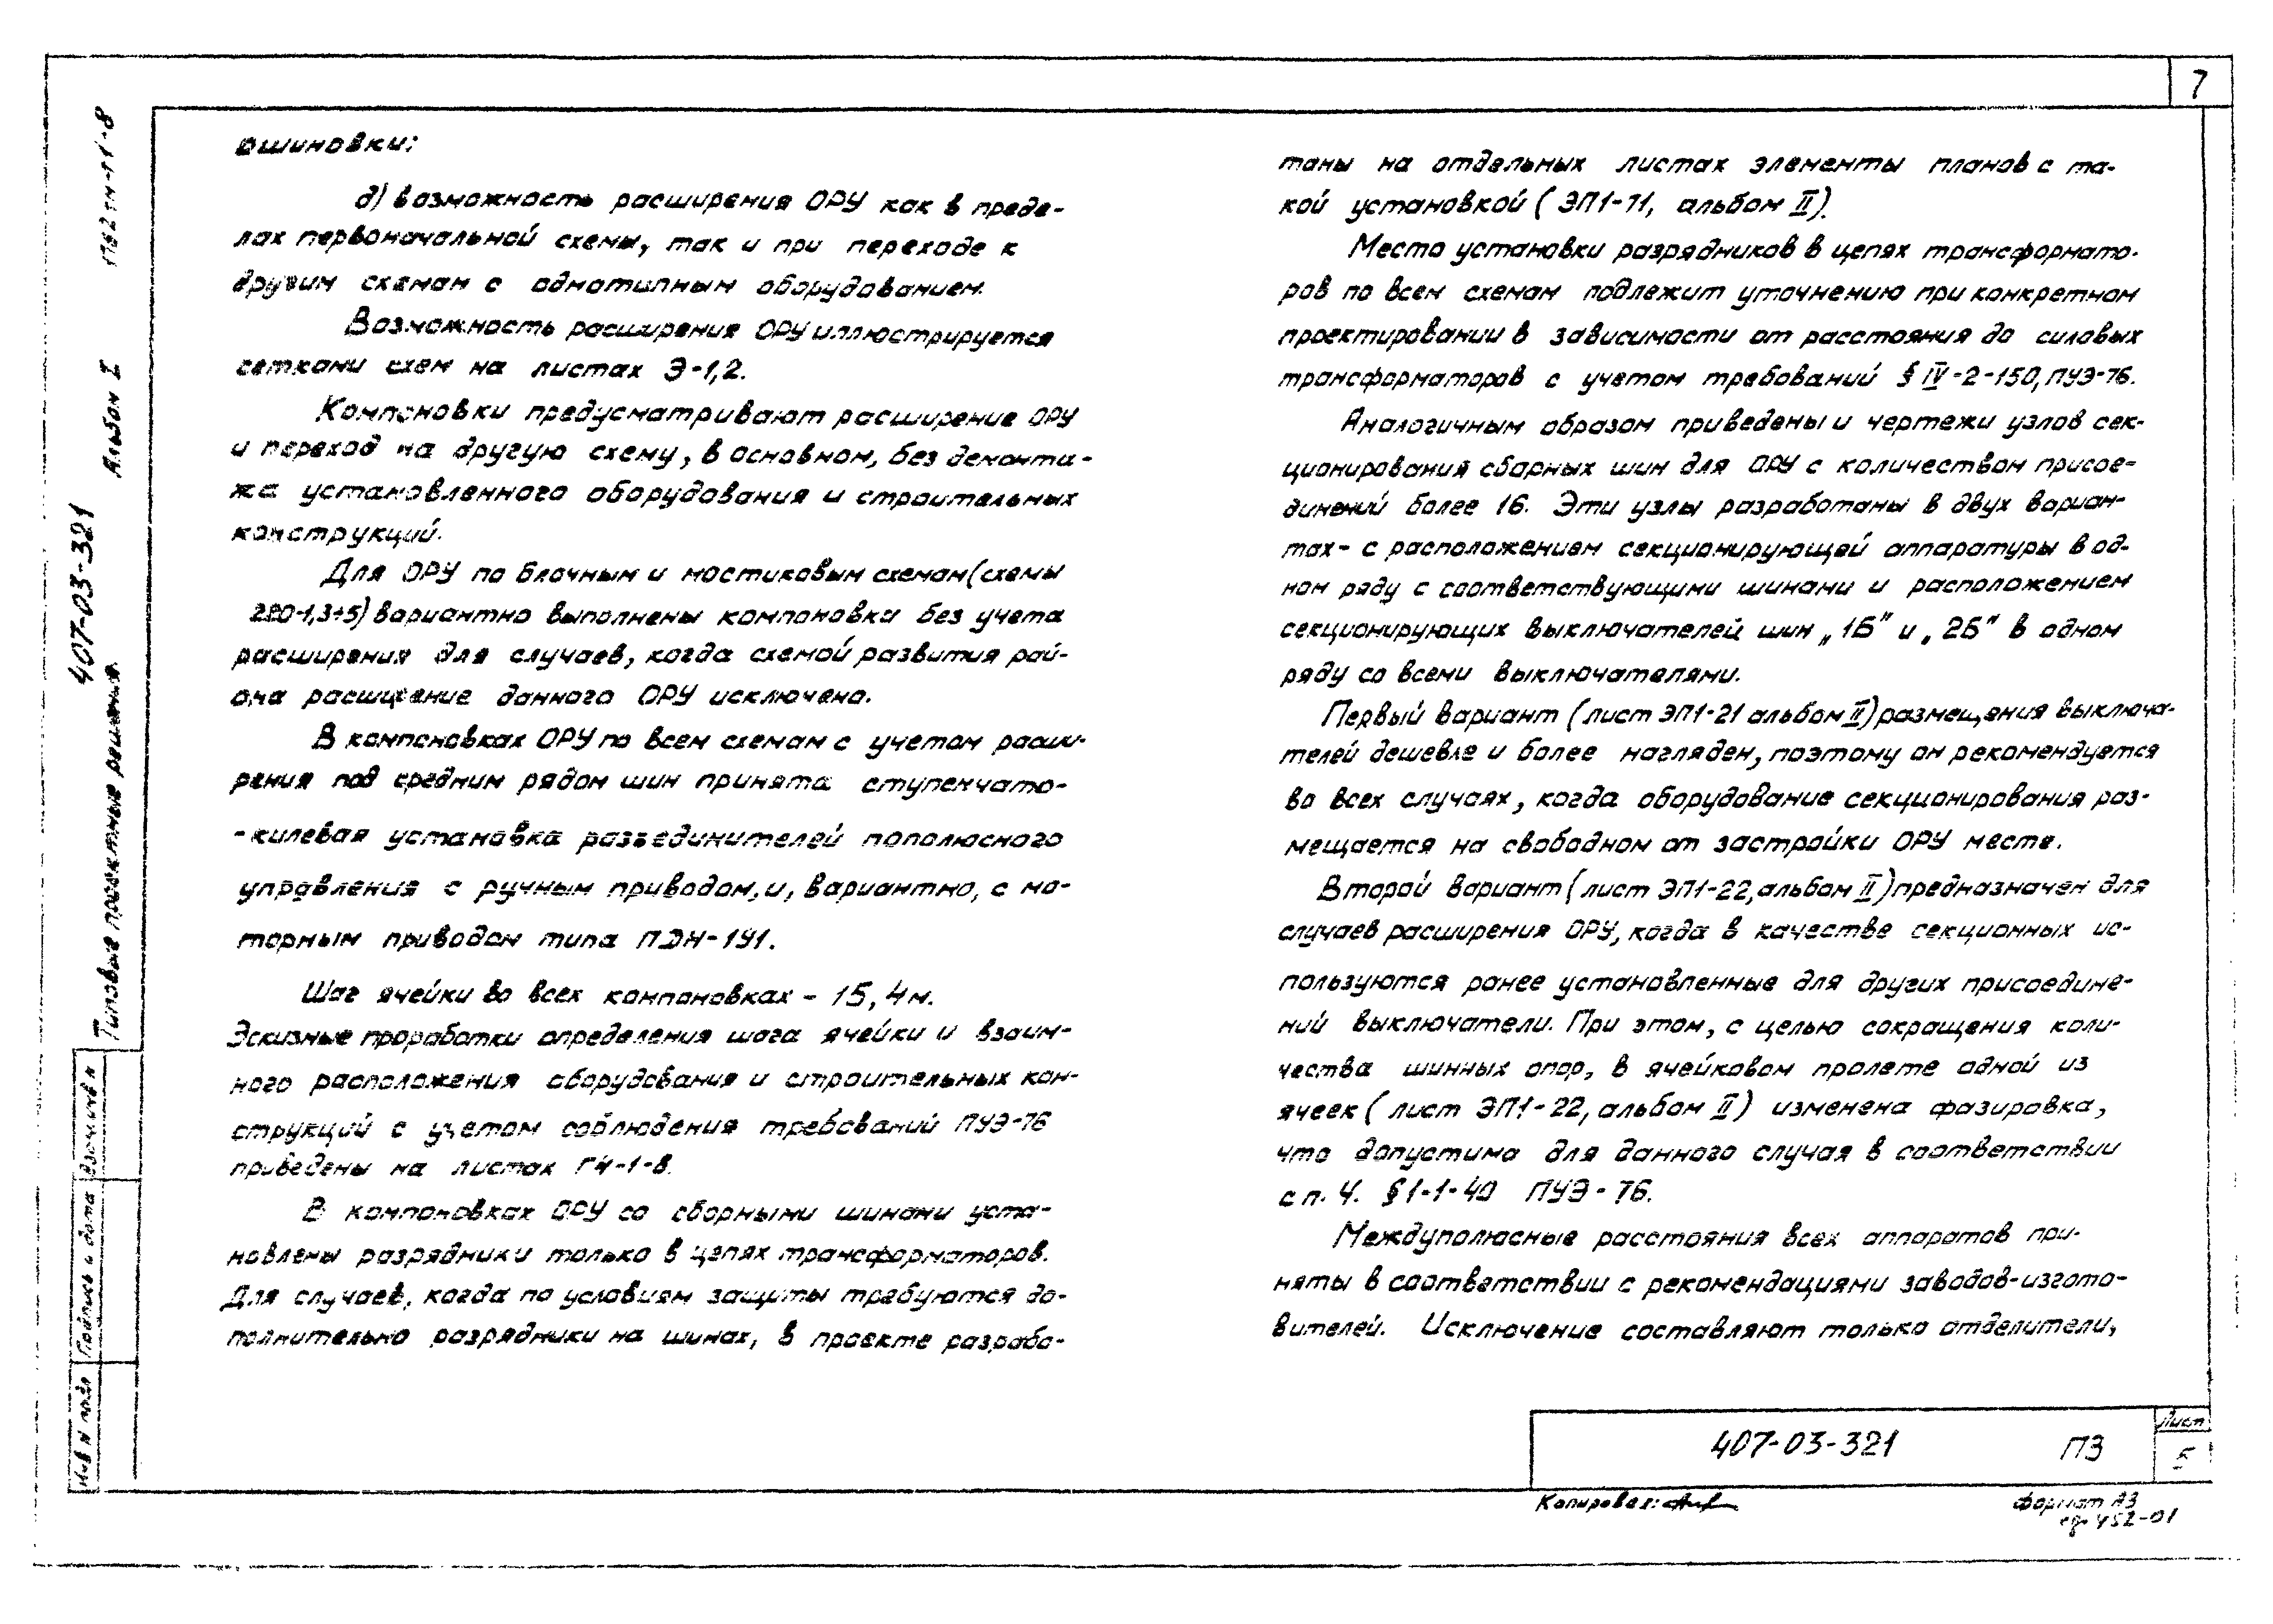 7
ошиновки;
д) возможность расширения ОРУ как в преде-
лах первоначальной схемы, так и при переходе к
другим схемам с однотипным оборудованием.
Возможность расширения ОРУ иллюстрируется
сетками схем на листах Э-1,2.
Компоновки предусматривают расширение ОРУ
и переход на другую схему, в основном, без демонта-
жа установленного оборудования и строительных
конструкций.
Для ОРУ по блочным и мостиковым схемам (схемы
220-1,3÷5) вариантно выполнены компоновки без учета
расширения для случаев, когда схемой развития рай-
она расширение данного ОРУ исключено.
В компоновках ОРУ по всем схемам с учетом расши-
рения под средним рядом шин принята ступенчато-
-килевая установка разъединителей пополюсного
управления с ручным приводом, и, вариантно, с мо-
торным приводом типа ПДН-1У1.
Шаг ячейки во всех компоновках - 15,4м.
Эскизные проработки определения шага ячейки и взаим-
ного расположения оборудования и строительных кон-
струкций с учетом соблюдения требований ПУЭ-76
приведены на листах ГЧ-1-8.
В компоновках ОРУ со сборными шинами уста-
новлены разрядники только в цепях трансформаторов.
Для случаев, когда по условиям защиты требуются до-
полнительно разрядники на шинах, в проекте разрабо-
таны на отдельных листах элементы планов с та-
кой установкой (ЭП1-71, альбом II).
Место установки разрядников в цепях трансформато-
ров по всем схемам подлежит уточнению при конкретном
проектировании в зависимости от расстояния до силовых
трансформаторов с учетом требований § IV-2-150, ПУЭ-76.
Аналогичным образом приведены и чертежи узлов сек-
ционирования сборных шин для ОРУ с количеством присое-
динений более 16. Эти узлы разработаны в двух вариан-
тах- с расположением секционирующей аппаратуры в од-
ном ряду с соответствующими шинами и расположением
секционирующих выключателей шин „1Б" и „2Б" в одном
ряду со всеми выключателями.
Первый вариант (лист ЭП1-21 альбом II) размещения выключа-
телей дешевле и более нагляден, поэтому он рекомендуется
во всех случаях, когда оборудование секционирования раз-
мещается на свободном от застройки ОРУ месте.
Второй вариант (лист ЭП1-22, альбом II) предназначен для
случаев расширения ОРУ, когда в качестве секционных ис-
пользуются ранее установленные для других присоедине-
ний выключатели. При этом, с целью сокращения коли-
чества шинных опор, в ячейковом пролете одной из
ячеек (лист ЭП1-22, альбом II) изменена фазировка,
что допустимо для данного случая в соответствии
с п. 4. § 1-1-40 ПУЭ-76.
Междуполюсные расстояния всех аппаратов при-
няты в соответствии с рекомендациями заводов-изгото-
вителей. Исключение составляют только отделители,
Типовые проектные решения
407-03-321
Альбом I
1762тм-т1-8
Взам инв N
Подпись и дата
Инв N подл
407-03-321
ПЗ
Лист
5
Копировал:
Формат А3